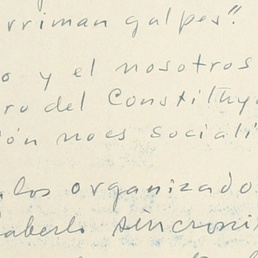 rriman galpes".
o y el nosotros
ro del Constituy
ión no es sociali
los organizado
aberlo sincroni